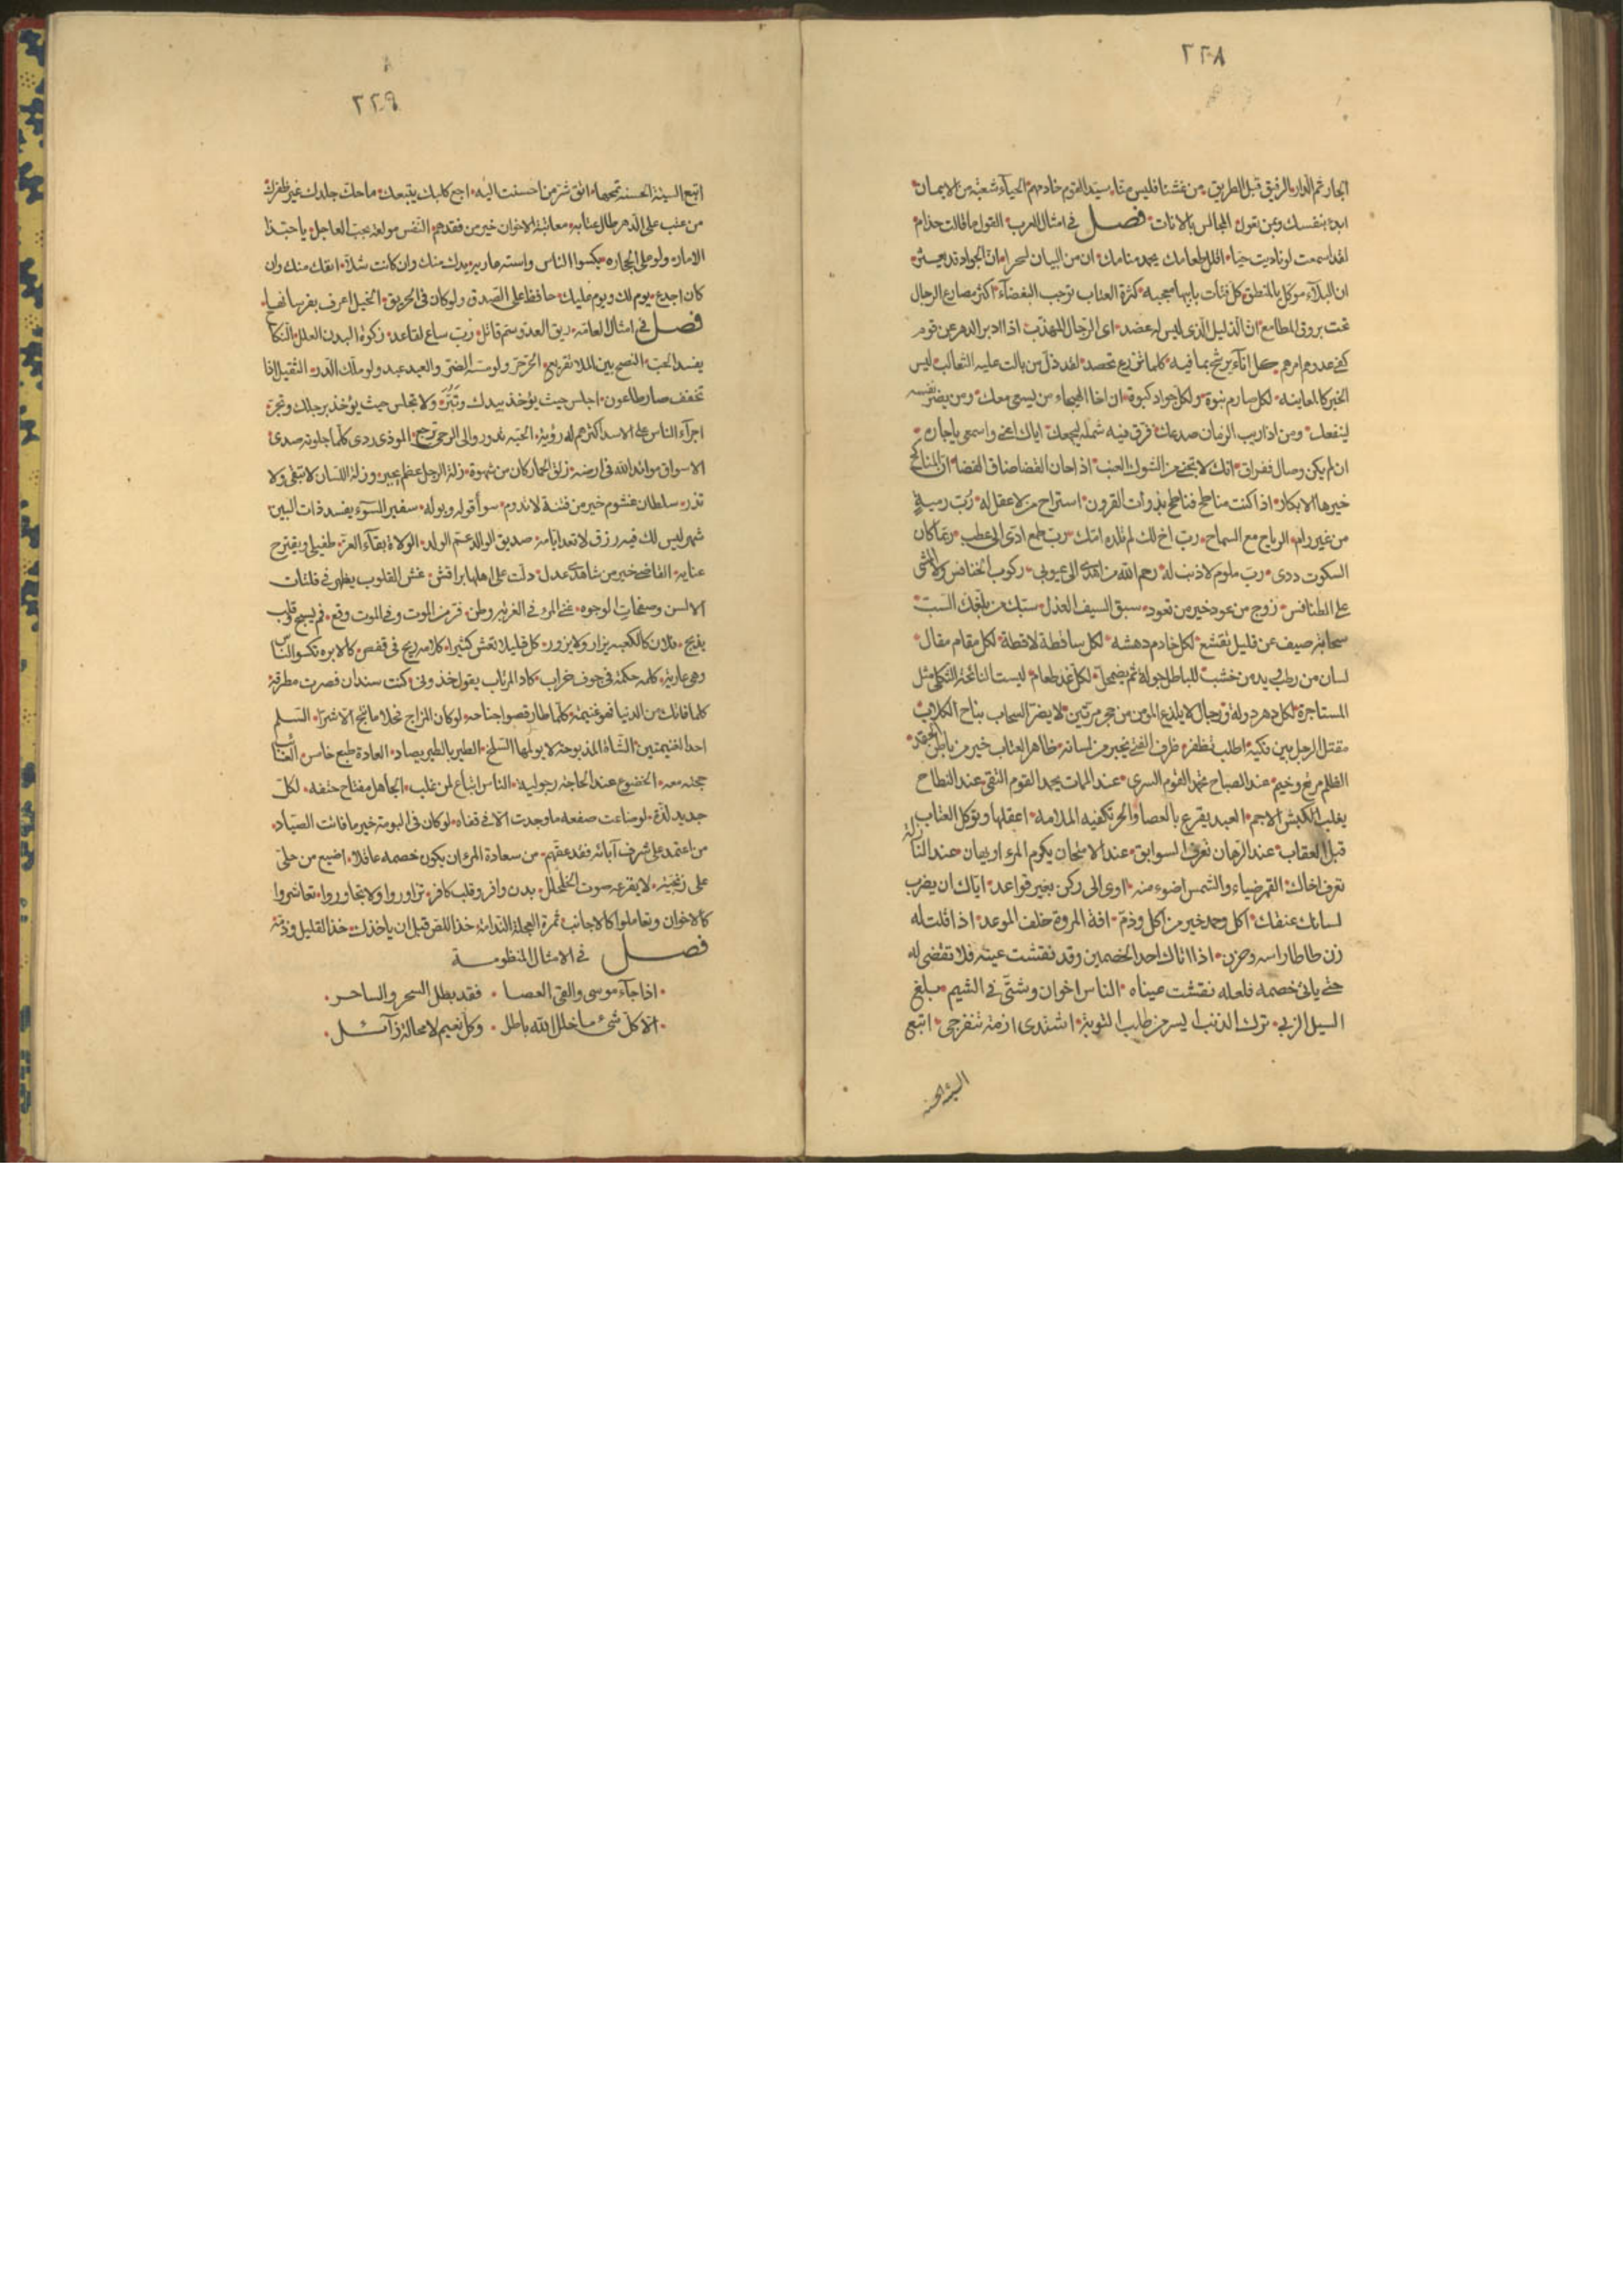 ٢٢٨
الجار ثم الدار الرفيق قبل الطريق من غشنا فليس منا سيد القوم خادمهم الحياء شعبة من الايمان
ابدء بنفسك وبمن تعول المجالس بالامانات فصل في امثال العرب القول ما قالت حذام
لقد اسمعت لو ناديت حيا اقلل طعامك يحمد منامك ان من البيان لسحرا ان الجواد قد يعثر
ان البلاء موكل بالمنطق كل فتات بابيها معجبه كثرة العتاب توجب البغضآء اكثر مصارع الرجال
تحت بروق المطامع ان الذليل الذي ليس له عضد اى الرجال المهذب اذا ادبر الدهر عن قوم
كفى عدوهم امرهم كل انآء يرشح بما فيه كلما تزرع تحصد لقد ذل من بالت عليه الثعالب ليس
الخبر كالمعاينة لكل صارم نبوة ولكل جواد كبوة ان اخا الهيجاء من يسعى معك ومن يضر نفسه
لينفعك ومن اذا ريب الزمان صدعك فرق فيه شمله ليجمعك اياك اعنى واسمعى ياجاره
ان لم يكن وصال ففراق انك لا تجنى من الشوك العنب اذا حان القضا ضاق الفضا ان المناكح
خيرها الابكار اذا كنت مناطح فناطح بذوات القرون استراح من لا عقل له رب رمية
من غير رام الرباح مع السماح رب اخ لك لم تلده امك رب طمع ادى الى عطب ربما كان
السكوت ردى رب ملوم لا ذنب له رحم الله من اهدى الى عيوبى ركوب الخنافس ولا المشى
على الطنافس زوج من عود خير من قعود سبق السيف العذل سبك من بلغك السب
سحابة صيف عن قليل تقشع لكل خادم دهشه لكل ساقطة لاقطة لكل مقام مقال
لسان من رطب ويد من خشب للباطل جولة ثم يضمحل لكل غد طعام ليست النائحة الثكلى مثل
المستاجرة لكل دهر دولة ورجال لا يلدغ المومن من جحر مرتين لا يضر السحاب نباح الكلاب
مقتل الرجل بين فكيه اطلب تظفر ظرف الفتى يخبر من لسانه ظاهر العتاب خير من باطن الحقد
الظلم مرتع وخيم عند الصباح تحمد القوم السرى عند الممات يحمد القوم التقى عند النطاح
يغلب الكبش الاجم العبد يقرع بالعصا والحر تكفيه الملامه اعقلها وتوكل العتاب
قبل العقاب عند الرهان تعرف السوابق عند الامتحان يكرم المرء او يهان عند النازلة
تعرف اخاك القمر ضياء والشمس اضوء منه اوى الى ركن بغير قواعد اياك ان يضرب
لسانك عنقك اكل وحمد خير من اكل وذم افة المروة خلف الموعد اذا قلت له
زن طاطا راسه وحزن اذا اتاك احد الخصمين وقد نقشت عينه فلا تقضى له
حتى ياتى خصمه فلعله نقشت عيناه الناس اخوان وشتى في الشيم بلغ
السيل الزبى ترك الذنب ايسر من طلب التوبة اشتدى ازمة تنفرجى اتبع
السيئة الحسنه
٢٢٩
اتبع السيئة الحسنه تمحها اتق شر من احسنت اليه اجع كلبك يتبعك ما حك جلدك غير ظفرك
من عتب على الدهر طال عتابه معاتبة الاخوان خير من فقدهم النفس مولعة بحب العاجل يا حبذا
الامارة ولو على الحجاره يكسوا الناس واسته عاريه يدك منك وان كانت شلآ انفك منك وان
كان اجدع يوم لك ويوم عليك حافظ على الصديق ولو كان في الحريق الخيل اعرف بفرسانها
فصل في امثال العامه ريق العدو سم قاتل رب ساع لقاعد زكوة البدن العلل النكا
يفسد الحب النصح بين الملا تقريع الحر حر ولو مسه الضر والعبد عبد ولو ملك الدر الثقيل اذا
تخفف صار طاعون اجلس حيث يؤخذ بيدك وتبر ولا تجلس حيث يؤخذ برجلك وتجر
اجرآء الناس على الاسد اكثرهم له رؤية الحبه تدور والى الرحى ترجع الموذى ردى كلما جلوته صدى
الاسواق موائد الله في ارضه زلق الحمار كان من شهوة زلة الرجل عظم يجبر وزلة اللسان لا تبقى ولا
تذر سلطان غشوم خير من فتنة لا تدوم سوأ قوله وبوله سفير السوء يفسد ذات البين
شهر ليس لك فيه رزق لا تعد ايامه صديق الوالد عم الولد الولاة بقاء العز طفيلى ويقترح
عناية القاضى خير من شاهدى عدل دلت على اهلها براقش غش القلوب يظهر في فلتات
الالسن وصفحات الوجوه غنى المرء في الغربة وطن فر من الموت وفي الموت وقع فم يسبح وقلب
يذبح فلان كالكعبه يزار ولا يزور كل قليلا تعش كثيرا كلامه ريح في قفص كالابره تكسوا الناس
وهى عاريه كلمه حكمة في جوف خراب كاد المرتاب يقول خذونى كنت سندان فصرت مطرقة
كلما فاتك من الدنيا فهو غنيمة كلما طار قصوا جناحه لو كان المزاح فحلا ما نتج الا شرا السلم
احد الغنيمتين الشاة المذبوحة لا يولمها السلخ الطير بالطير يصاد العادة طبع خامس الغائب
حجته معه الخضوع عند الحاجة رجوليه الناس اتباع لمن غلب الجاهل مفتاح حتفه لكل
جديد لذة لو ضاعت صفعه ما وجدت الا في قفاه لو كان في البومة خير ما فاتت الصياد
من اعتمد على شرف آبائه فقد عقهم من سعادة المرء ان يكون خصمه عاقلا اضيع من حلى
على زنجيه لا يقرعه صوت الخلخال بدن وافر وقلب كافر تزاوروا ولا تجاوروا تعاشروا
كالاخوان وتعاملوا كالاجانب ثمرة العجلة الندامة خذ اللص قبل ان ياخذك خذ القليل وذمه
فصل في الامثال المنظومة
اذا جآء موسى والقى العصا فقد بطل السحر والساحر
الا كل شئ ما خلا الله باطل وكل نعيم لا محالة زآئل